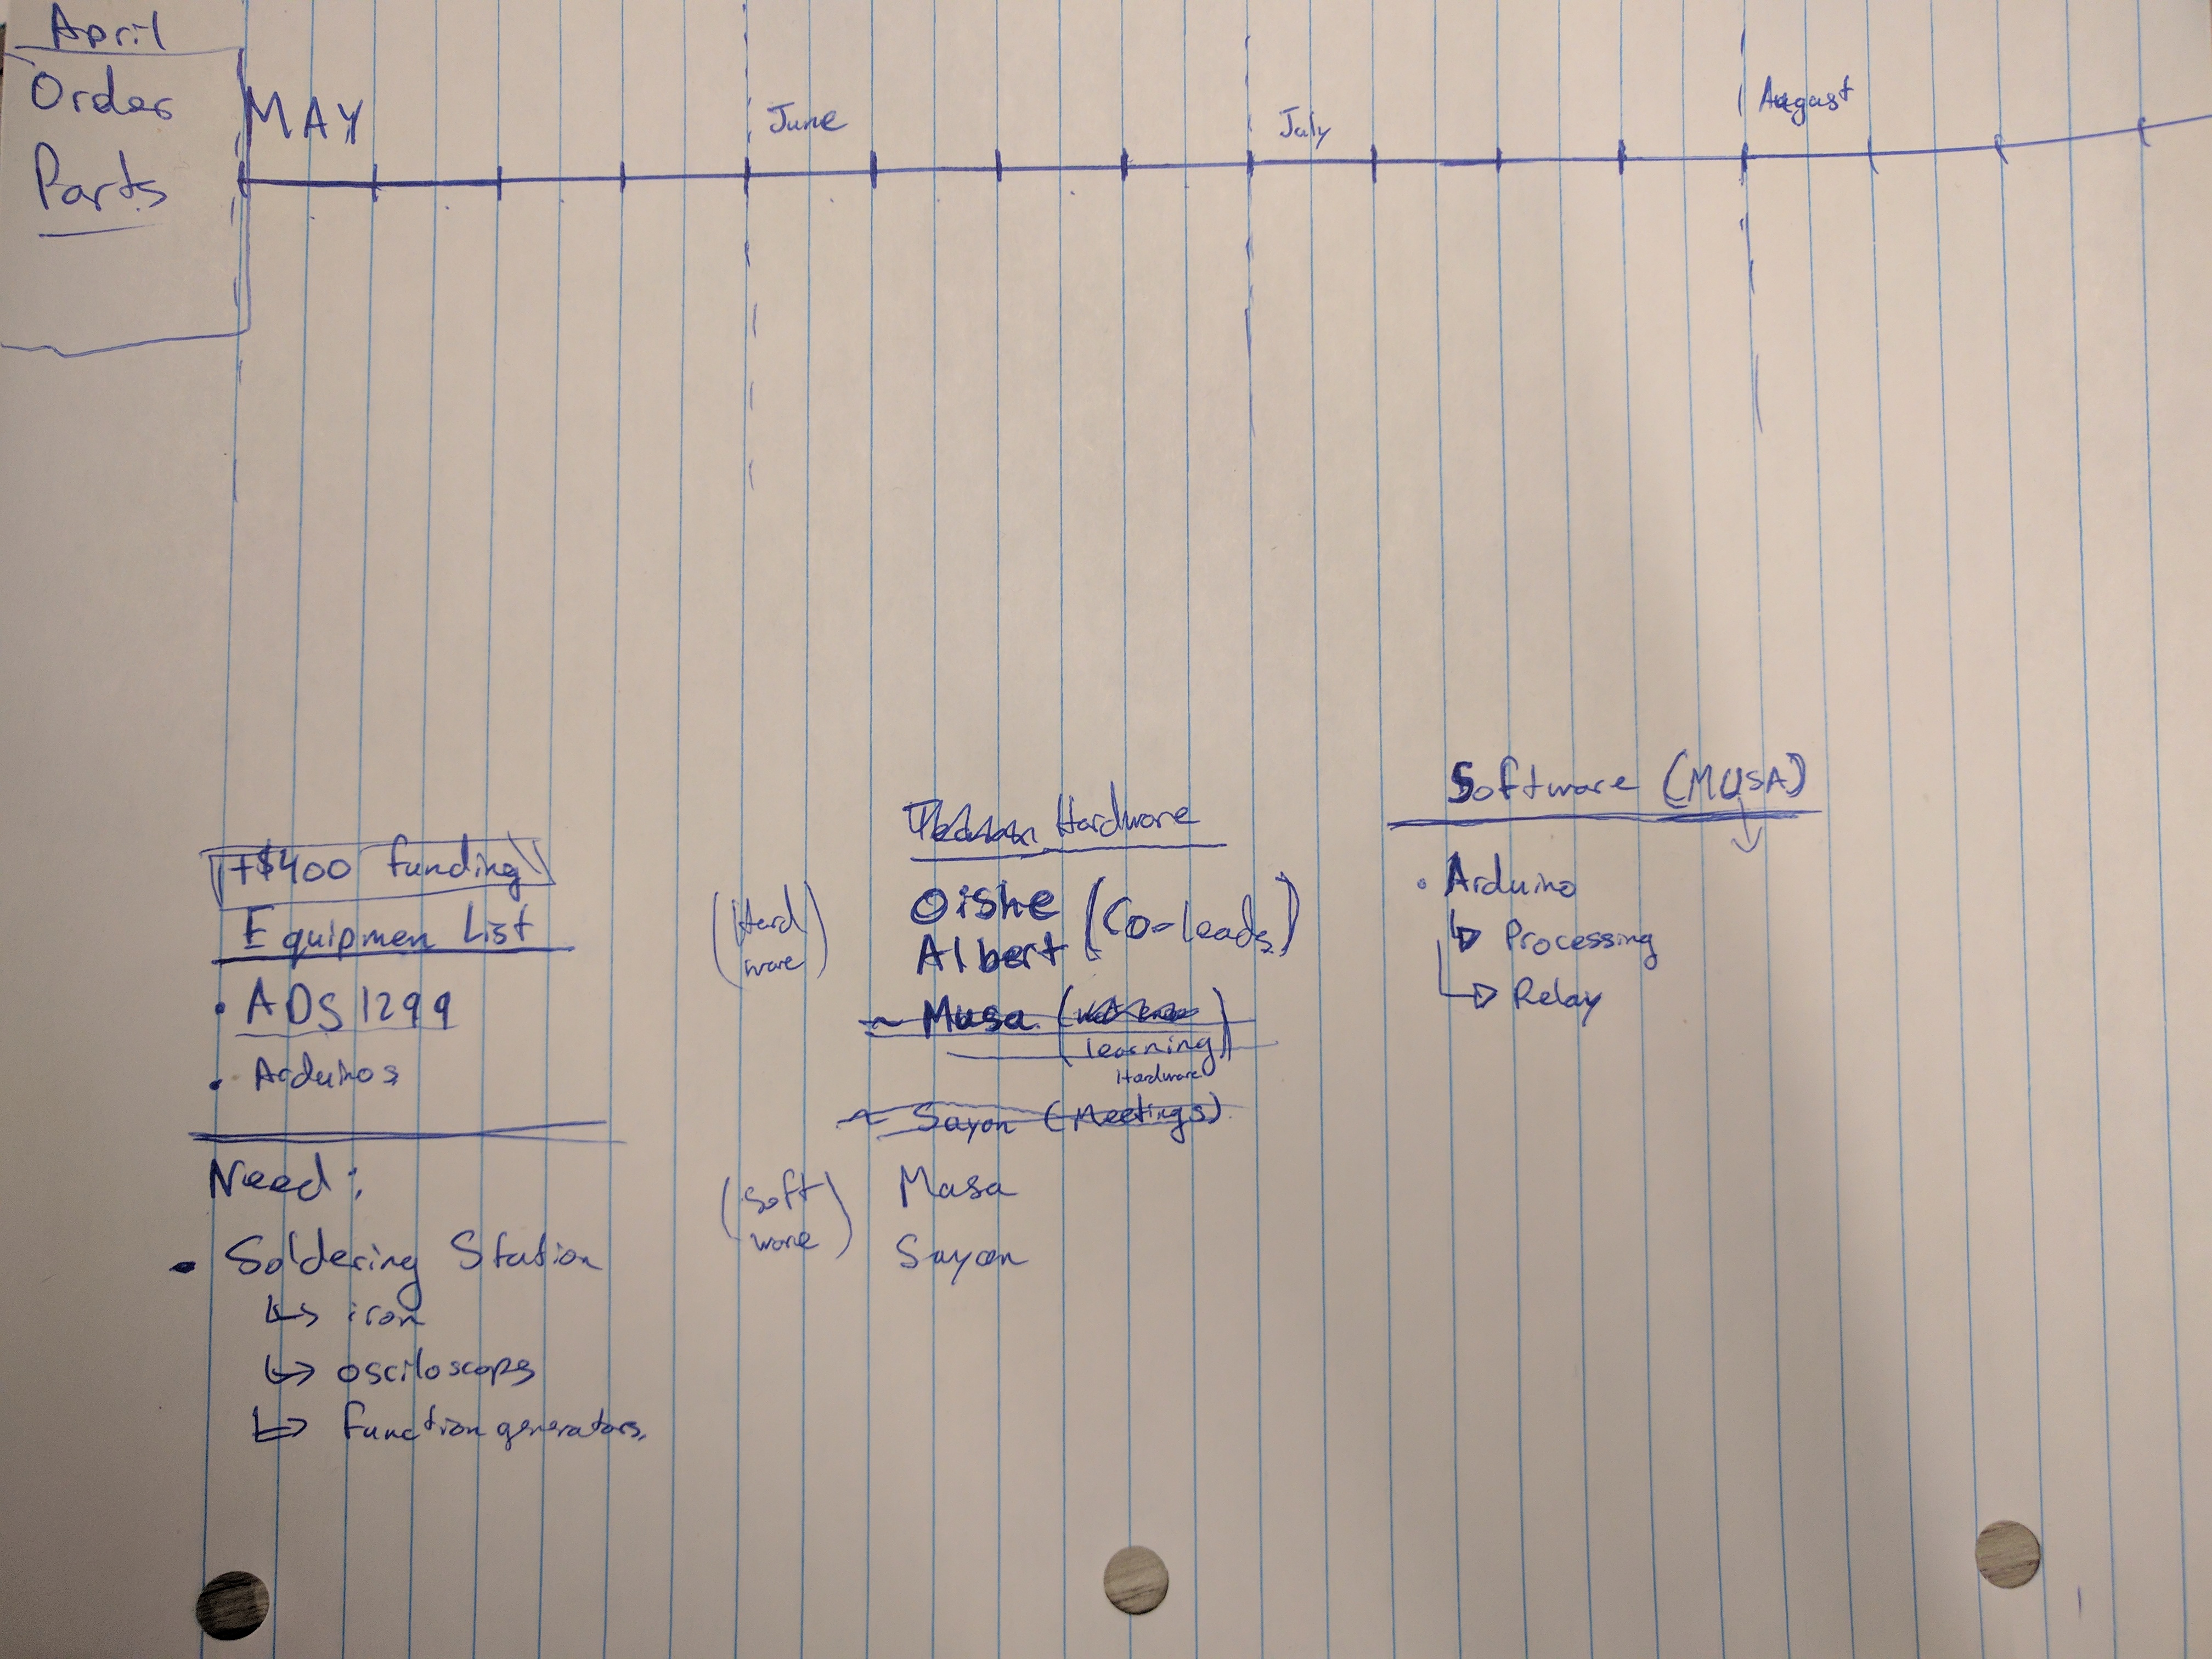 April
Order
Parts
MAY
June
July
August
+$400 funding
Equipmen List
• ADS1299
• Arduinos
Need:
• Soldering Station
↳ iron
↳ osciloscops
↳ function generators.
Hardware
(Hard
ware)
Oishe
Albert (Co-leads)
~ Musa (
learning)
Hardware
~ Sayon (Meetings)
(Soft
ware)
Musa
Sayon
Software (MUSA)
• Arduino
↳ Processing
↳ Relay